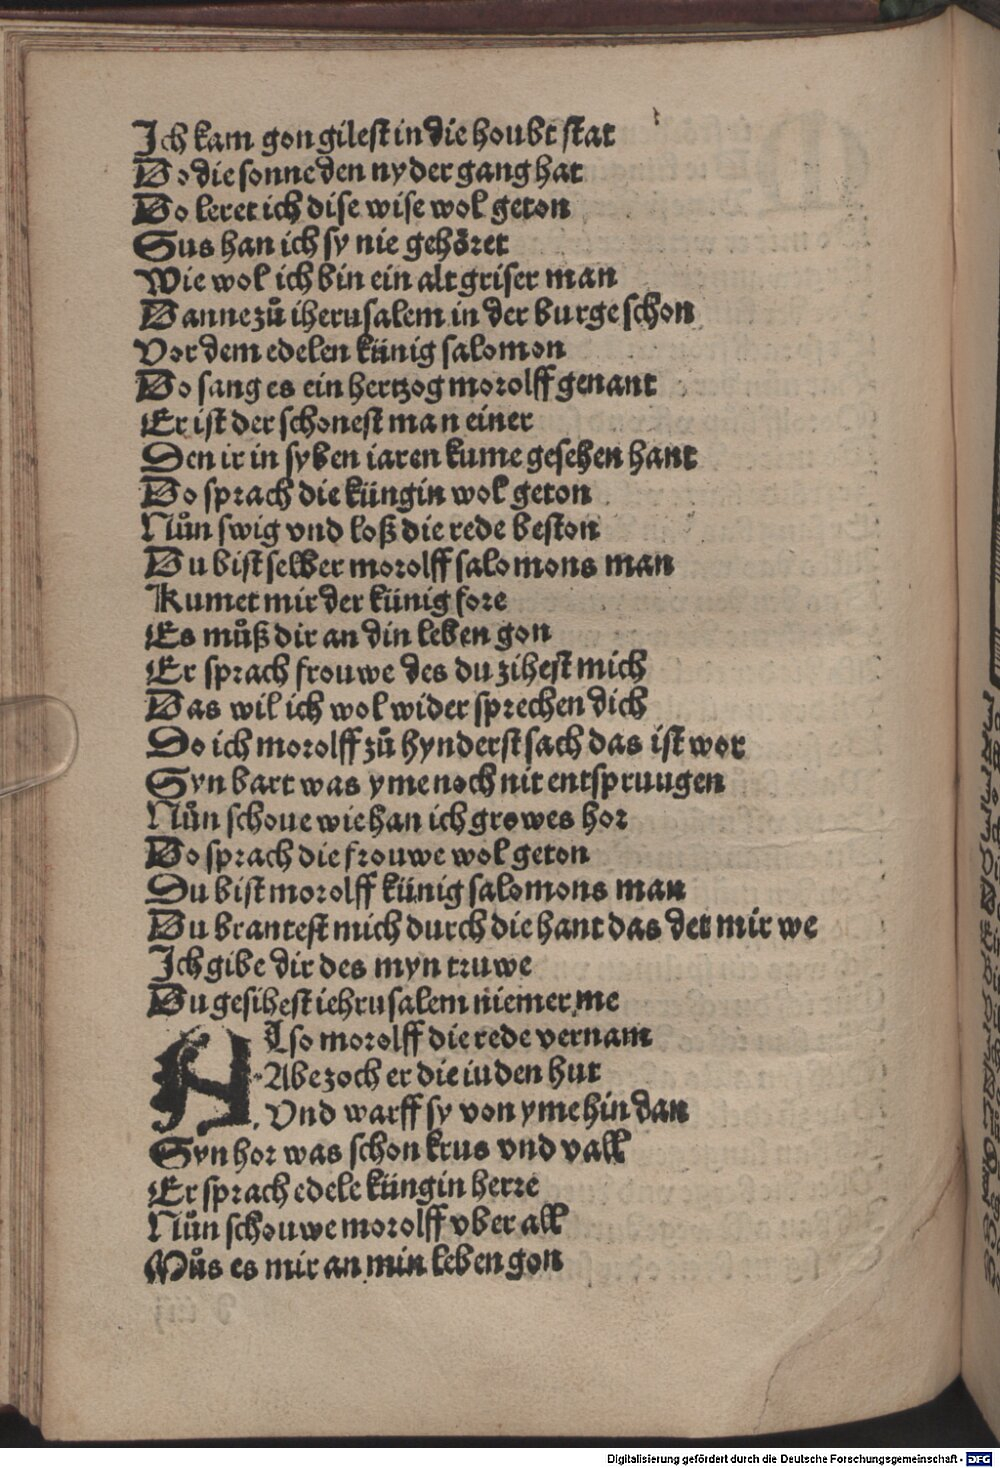 Ich kam gon gilest in die houbt stat
Do die sonne den nyder gang hat
Do leret ich dise wise wol geton
Sus han ich sy nie gehöret
Wie wol ich bin ein alt griser man
Danne zů iherusalem in der burge schon
Vor dem edelen künig salomon
Do sang es ein hertzog morolff genant
Er ist der schonest man einer
Den ir in syben iaren kume gesehen hant
Do sprach die küngin wol geton
Nůn swig vnd loß die rede beston
Du bist selber morolff salomons man
Kumet mir der künig fore
Es můß dir an din leben gon
Er sprach frouwe des du zihest mich
Das wil ich wol wider sprechen dich
Do ich morolff zů hynderst sach das ist wor
Syn bart was yme noch nit entspruugen
Nůn schoue wie han ich growes hor
Do sprach die frouwe wol geton
Du bist morolff künig salomons man
Du brantest mich durch die hant das det mir we
Ich gibe dir des myn truwe
Du gesihest iehrusalem niemer me
Also morolff die rede vernam
Abe zoch er die iuden hut
Vnd warff sy von yme hin dan
Syn hor was schon krus vnd vall
Er sprach edele küngin herre
Nůn schouwe morolff vber all
Můs es mir an min leben gon
Digitalisierung gefördert durch die Deutsche Forschungsgemeinschaft - DFG